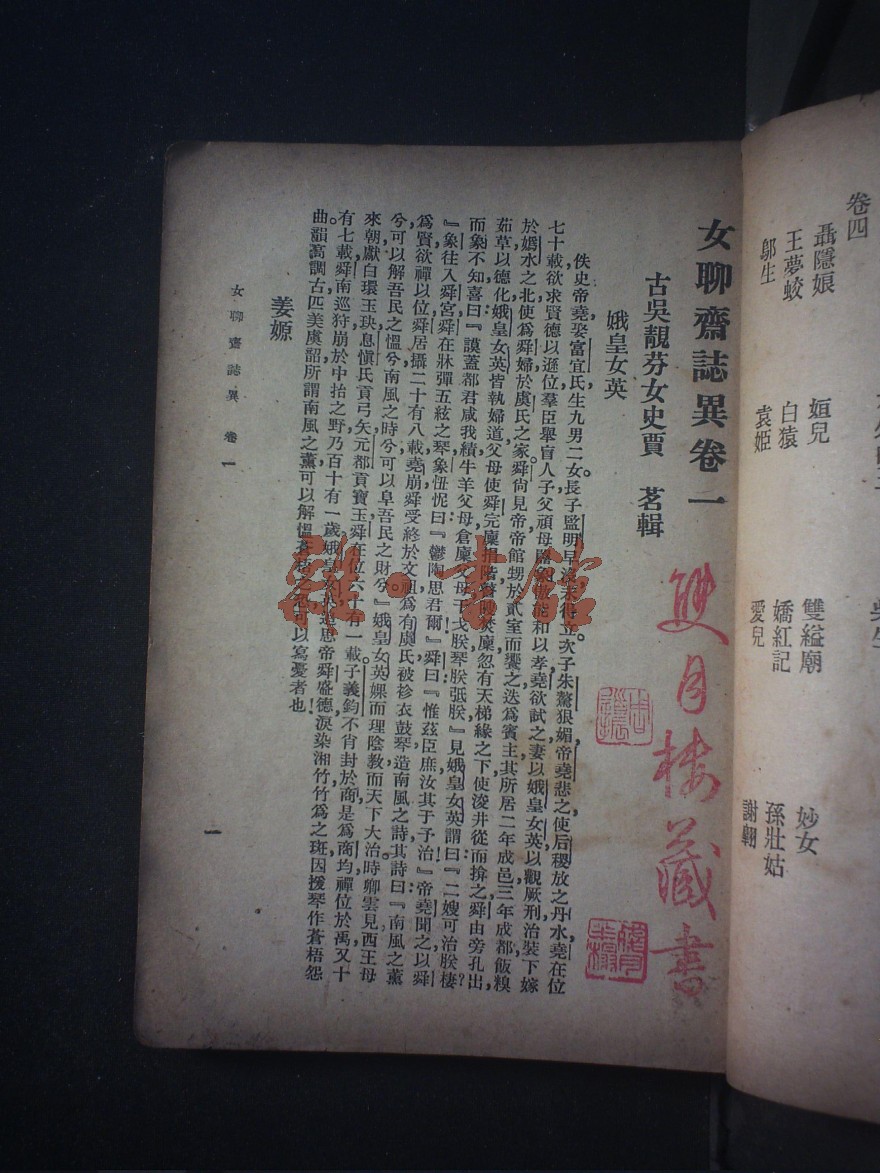 卷四
聶隱娘　姮兒　雙縊廟　妙女
王夢蛟　白猿　嬌紅記　孫壯姑
鄔生　袁姬　愛兒　謝翱
雙月樓藏書
女聊齋誌異卷一
古吳靚芬女史賈　茗輯
娥皇女英
佚史帝堯娶富宜氏生九男二女。長子監明早沒未得立次子朱驁狠媚帝堯悲之使后稷放之丹水堯在位
七十載欲求賢德以遜位羣臣舉盲人子父頑母嚚象傲能和以孝堯欲試之妻以娥皇女英以觀厥刑治裝下嫁
於嬀水之北使爲舜婦於虞氏之家舜尙見帝帝館甥於貳室而饗之迭爲賓主其所居二年成邑三年成都飯糗
茹草以德化娥皇女英皆執婦道父母使舜完廩捐階瞽瞍焚廩忽有天梯緣之下使浚井從而揜之舜由旁孔出
而象不知喜曰『謨蓋都君咸我績牛羊父母倉廩父母干戈朕琴朕弤朕』見娥皇女英謂曰『二嫂可治朕棲
』象往入舜宮舜在牀彈五絃之琴象忸怩曰『鬱陶思君爾』舜曰『惟茲臣庶汝其于予治』帝堯聞之以舜
爲賢欲禪以位舜居攝二十有八載堯崩舜受終於文祖爲有虞氏被袗衣鼓琴造南風之詩其詩曰『南風之薰
兮可以解吾民之慍兮南風之時兮可以阜吾民之財兮』娥皇女英婐而理陰敎而天下大治時卿雲見西王母
來朝獻白環玉玦息愼氏貢弓矢元都貢寶玉舜在位六十有一載子義鈞不肖封於商是爲商均禪位於禹又十
有七載舜南巡狩崩於中抬之野乃百十有一歲娥皇女英追思帝舜盛德淚染湘竹竹爲之斑因援琴作蒼梧怨
曲韻高調古匹美虞韶所謂南風之薰可以解慍蒼梧之怨可以寫憂者也！
姜嫄
女聊齋誌異　卷一
一